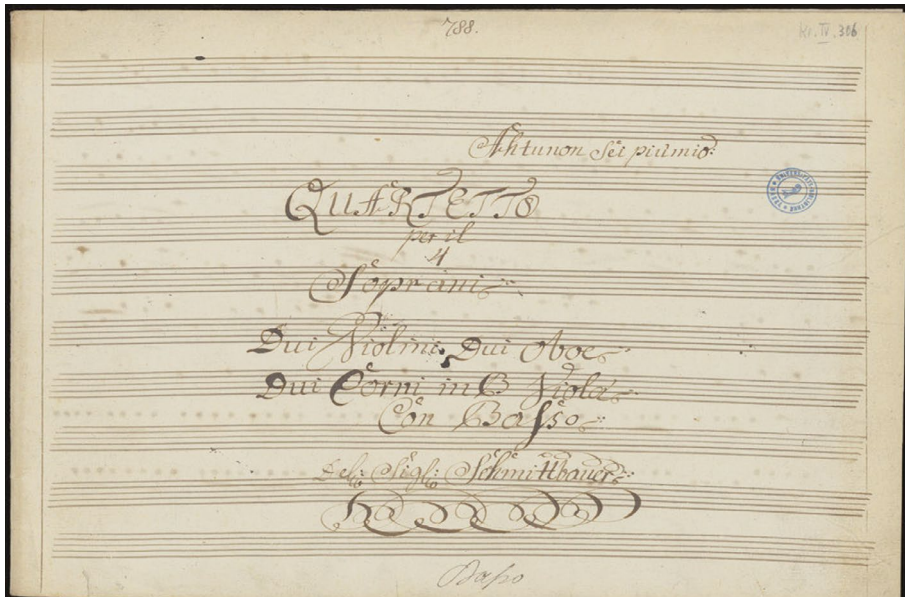 788.
Kr. IV. 306
Ah tu non Sei piu mio:
QUARTETTO
per il
4
Soprani
Dui Violini, Dui Oboe
Dui Corni in B Viola
Con Basso
Del: Sigl: Schmittbauer
Basso